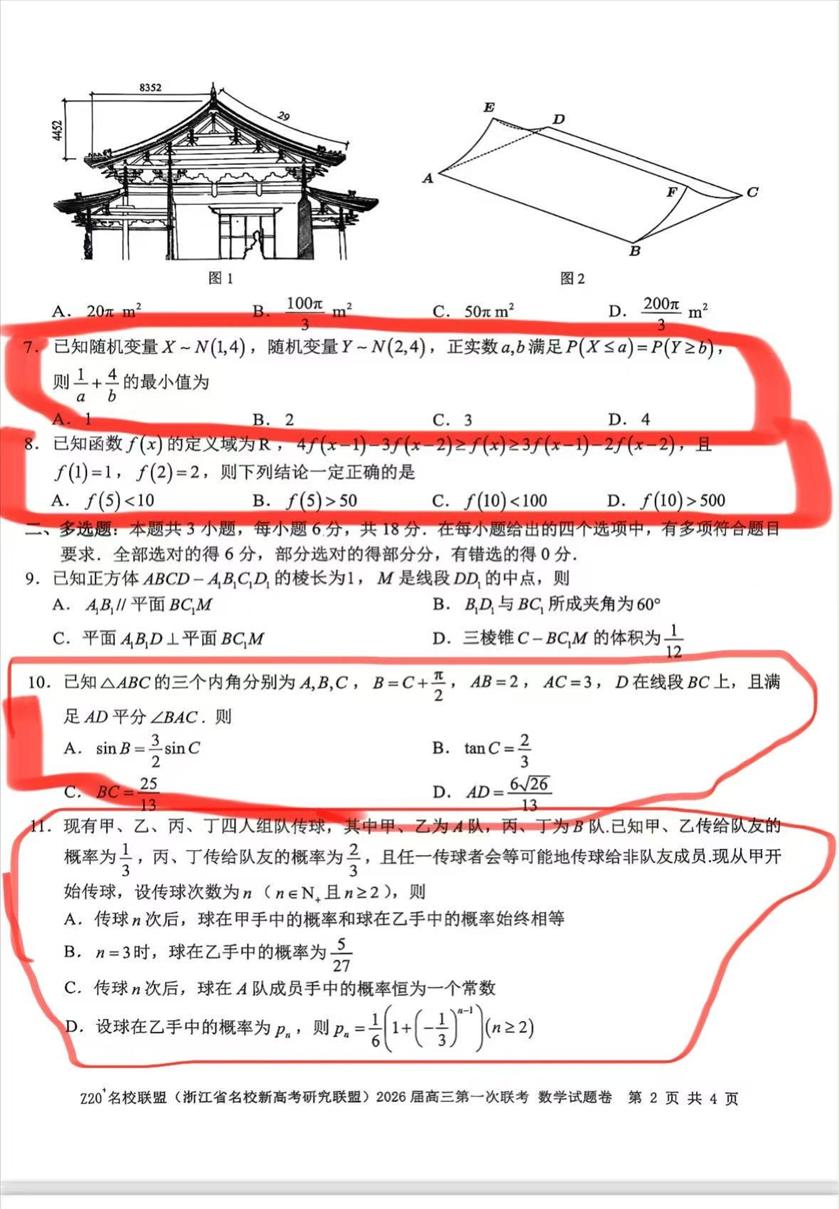 8352
4452
29
E
D
A
F
C
B
图1
图2
A. 20π m² B. 100π/3 m² C. 50π m² D. 200π/3 m²
7. 已知随机变量 X ~ N(1,4)，随机变量 Y ~ N(2,4)，正实数 a,b 满足 P(X≤a)=P(Y≥b)，
则 1/a + 4/b 的最小值为
A. 1 B. 2 C. 3 D. 4
8. 已知函数 f(x) 的定义域为 R，4f(x−1)−3f(x−2)≥f(x)≥3f(x−1)−2f(x−2)，且
f(1)=1，f(2)=2，则下列结论一定正确的是
A. f(5)<10 B. f(5)>50 C. f(10)<100 D. f(10)>500
二、多选题：本题共 3 小题，每小题 6 分，共 18 分．在每小题给出的四个选项中，有多项符合题目
要求．全部选对的得 6 分，部分选对的得部分分，有错选的得 0 分．
9. 已知正方体 ABCD−A₁B₁C₁D₁ 的棱长为1，M 是线段 DD₁ 的中点，则
A. A₁B₁// 平面 BC₁M B. B₁D₁ 与 BC₁ 所成夹角为 60°
C. 平面 A₁B₁D⊥平面 BC₁M D. 三棱锥 C−BC₁M 的体积为 1/12
10. 已知 △ABC 的三个内角分别为 A,B,C，B=C+π/2，AB=2，AC=3，D 在线段 BC 上，且满
足 AD 平分 ∠BAC．则
A. sin B = 3/2 sin C B. tan C = 2/3
C. BC = 25/13 D. AD = 6√26/13
11. 现有甲、乙、丙、丁四人组队传球，其中甲、乙为 A 队，丙、丁为 B 队.已知甲、乙传给队友的
概率为 1/3，丙、丁传给队友的概率为 2/3，且任一传球者会等可能地传球给非队友成员.现从甲开
始传球，设传球次数为 n（n∈N₊且 n≥2），则
A. 传球 n 次后，球在甲手中的概率和球在乙手中的概率始终相等
B. n=3时，球在乙手中的概率为 5/27
C. 传球 n 次后，球在 A 队成员手中的概率恒为一个常数
D. 设球在乙手中的概率为 pₙ，则 pₙ = 1/6(1+(−1/3)ⁿ⁻¹)(n≥2)
Z20⁺名校联盟（浙江省名校新高考研究联盟）2026 届高三第一次联考 数学试题卷 第 2 页 共 4 页